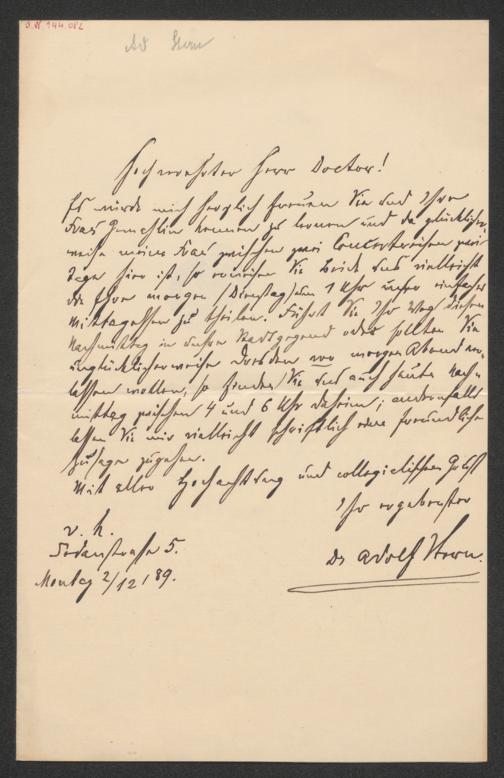 J.N. 144.082
Ad Stern
Hochverehrter Herr Doctor!
Es würde mich herzlich freuen Sie und Ihre
Frau Gemahlin kennen zu lernen und da glücklicher-
weise meine Frau zwischen zwei Concertreisen zwei
Tage hier ist, so erweisen Sie Beide uns vielleicht
die Ehre morgen (Dienstag) um 1 Uhr unser einfaches
Mittagessen zu theilen. Führt Sie Ihr Weg diesen
Nachmittag in unsere Stadtgegend oder sollten Sie
unglücklicherweise Dresden vor morgen Abend ver-
lassen wollen, so finden Sie uns auch heute Nach-
mittag zwischen 4 und 6 Uhr daheim; andernfalls
lassen Sie mir vielleicht schriftlich eine freundliche
Zusage zugehen.
Mit aller Hochachtung und collegialischem Gruß
Ihr ergebenster
Dr Adolf Stern.
v. h.
Sedanstraße 5.
Montag 2/12/89.